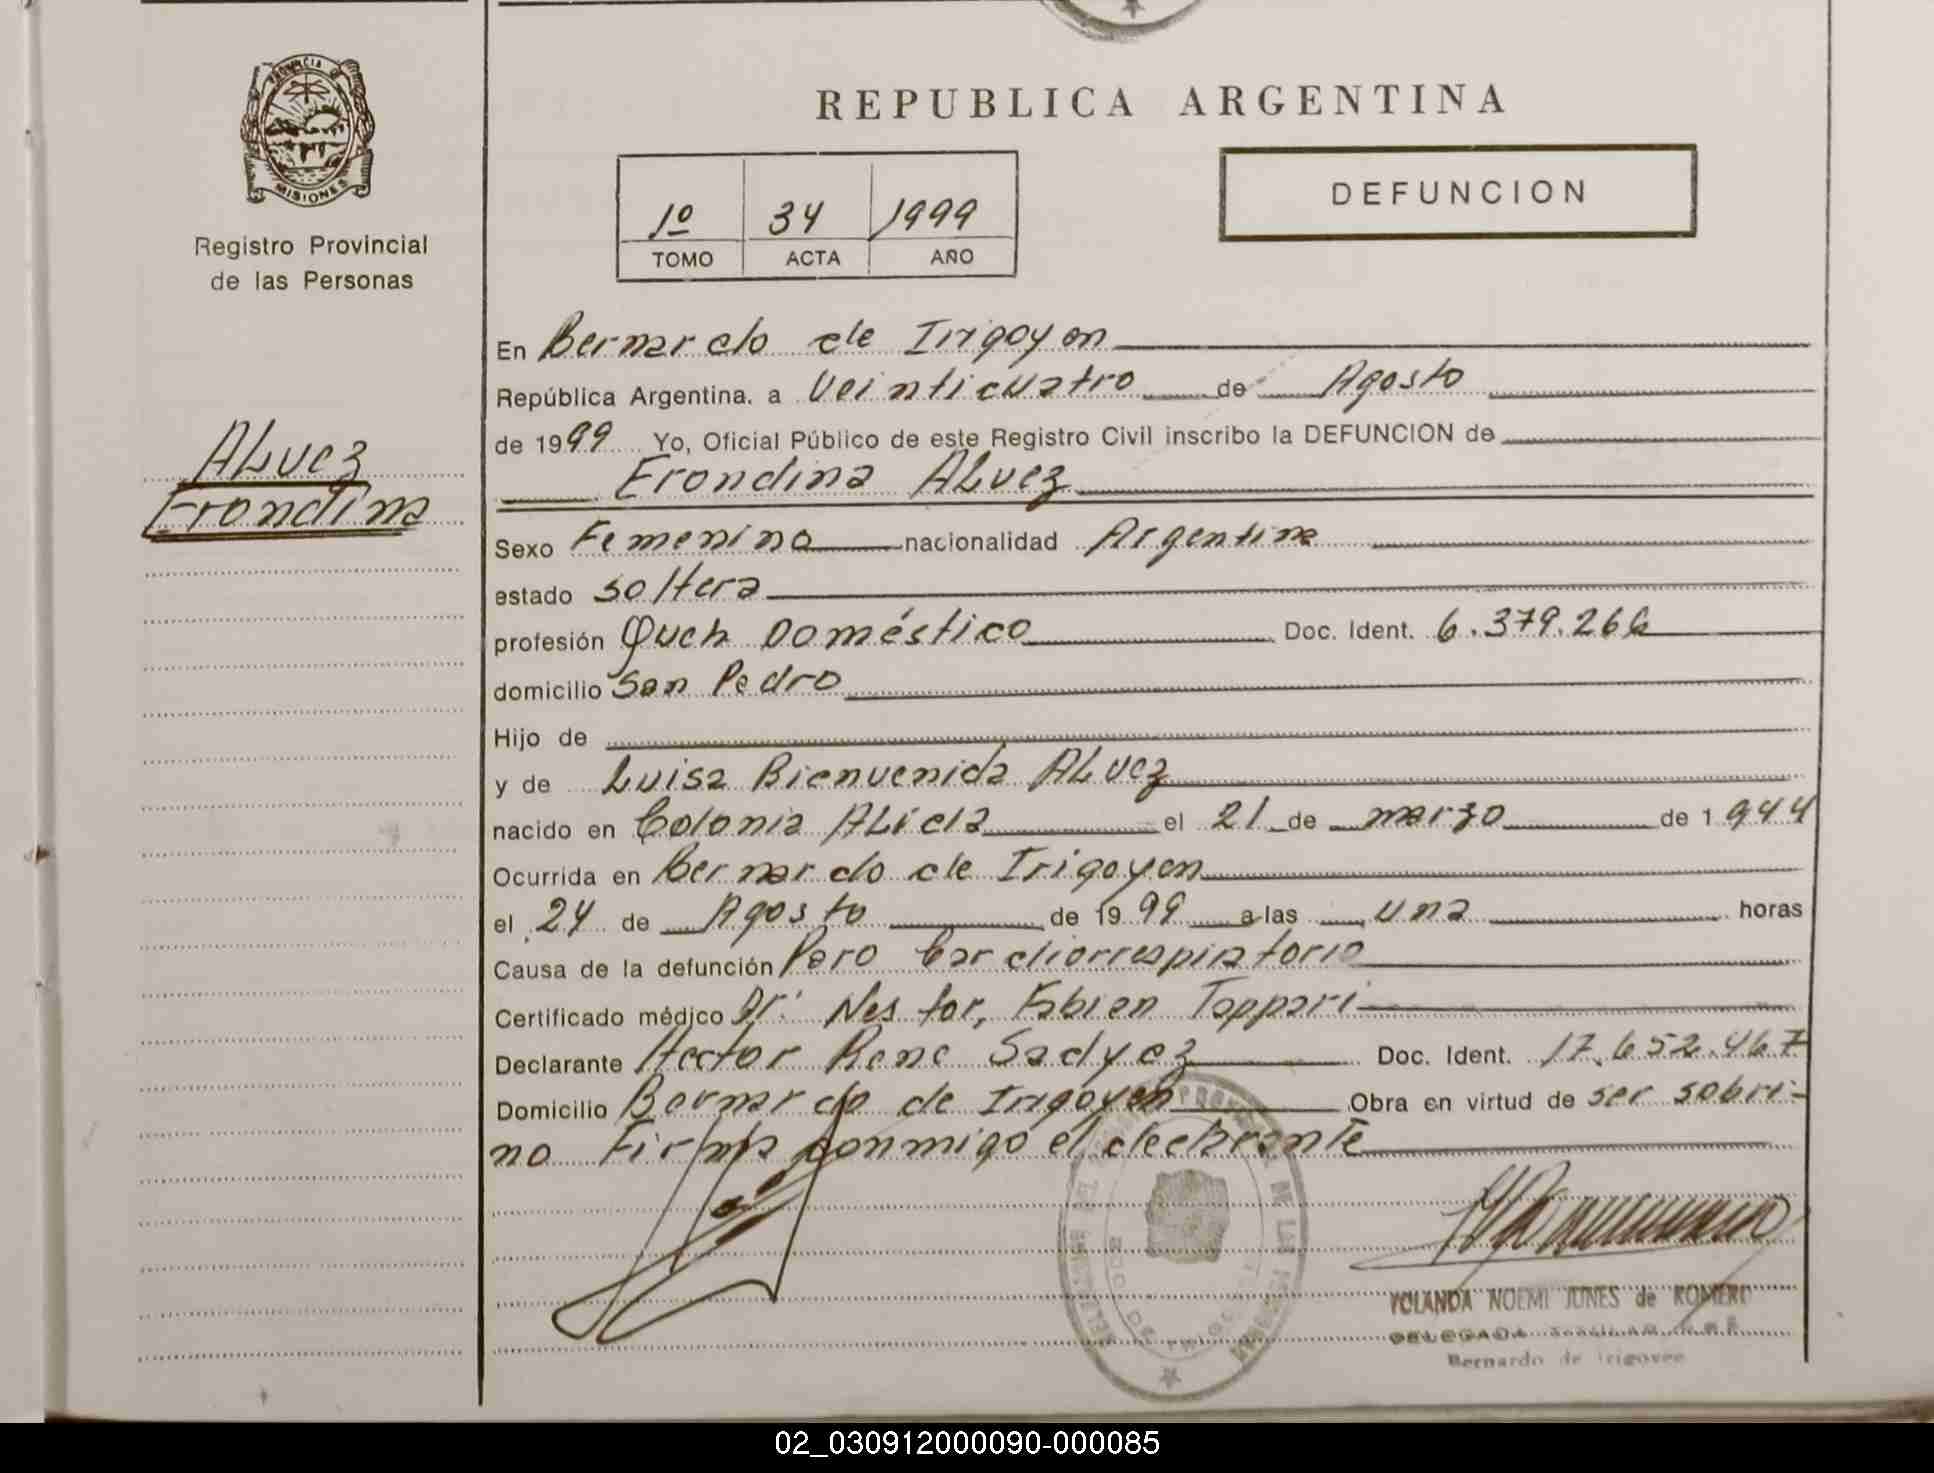 PROVINCIA DE
MISIONES
Registro Provincial
de las Personas
ALvez
Erondina
REPUBLICA ARGENTINA
1º 34 1999
TOMO ACTA AÑO
DEFUNCION
En Bernardo de Irigoyen
República Argentina, a Veinticuatro de Agosto
de 1999 Yo, Oficial Público de este Registro Civil inscribo la DEFUNCION de
Erondina ALvez
Sexo Femenino nacionalidad Argentina
estado soltera
profesión Queh Doméstico Doc. Ident. 6.379.266
domicilio San Pedro
Hijo de
y de Luisa Bienvenida ALvez
nacido en Colonia ALicia el 21 de marzo de 1944
Ocurrida en Bernardo de Irigoyen
el 24 de Agosto de 1999 a las una horas
Causa de la defunción Paro Cardiorrespiratorio
Certificado médico Dr. Nestor, Fabian Tappari
Declarante Hector Rene Sadyez Doc. Ident. 17.652.467
Domicilio Bernardo de Irigoyen Obra en virtud de ser sobri-
no Firma conmigo el declarante
YOLANDA NOEMI JUNES de ROMERO
DELEGADA TITULAR R.P.P.
Bernardo de Irigoyen
02_030912000090-000085